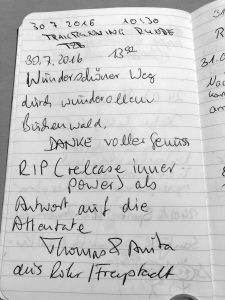 30.7.2016 10:30
TRAILRUNNING RUNDE
30.7.2016 13
Wunderschöner Weg
durch wundervollen
Buchenwald,
DANKE voller Genuss
RIP (release inner
power) als
Antwort auf die
Attentate
Thomas & Anita
aus Rohr / Freystadt
31
R
31.0